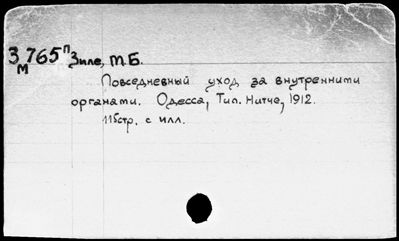 З765 П Зиле, М.Б.
М
Повседневный уход за внутренними
органами. Одесса, Тип. Нитче, 1912.
115стр. с илл.